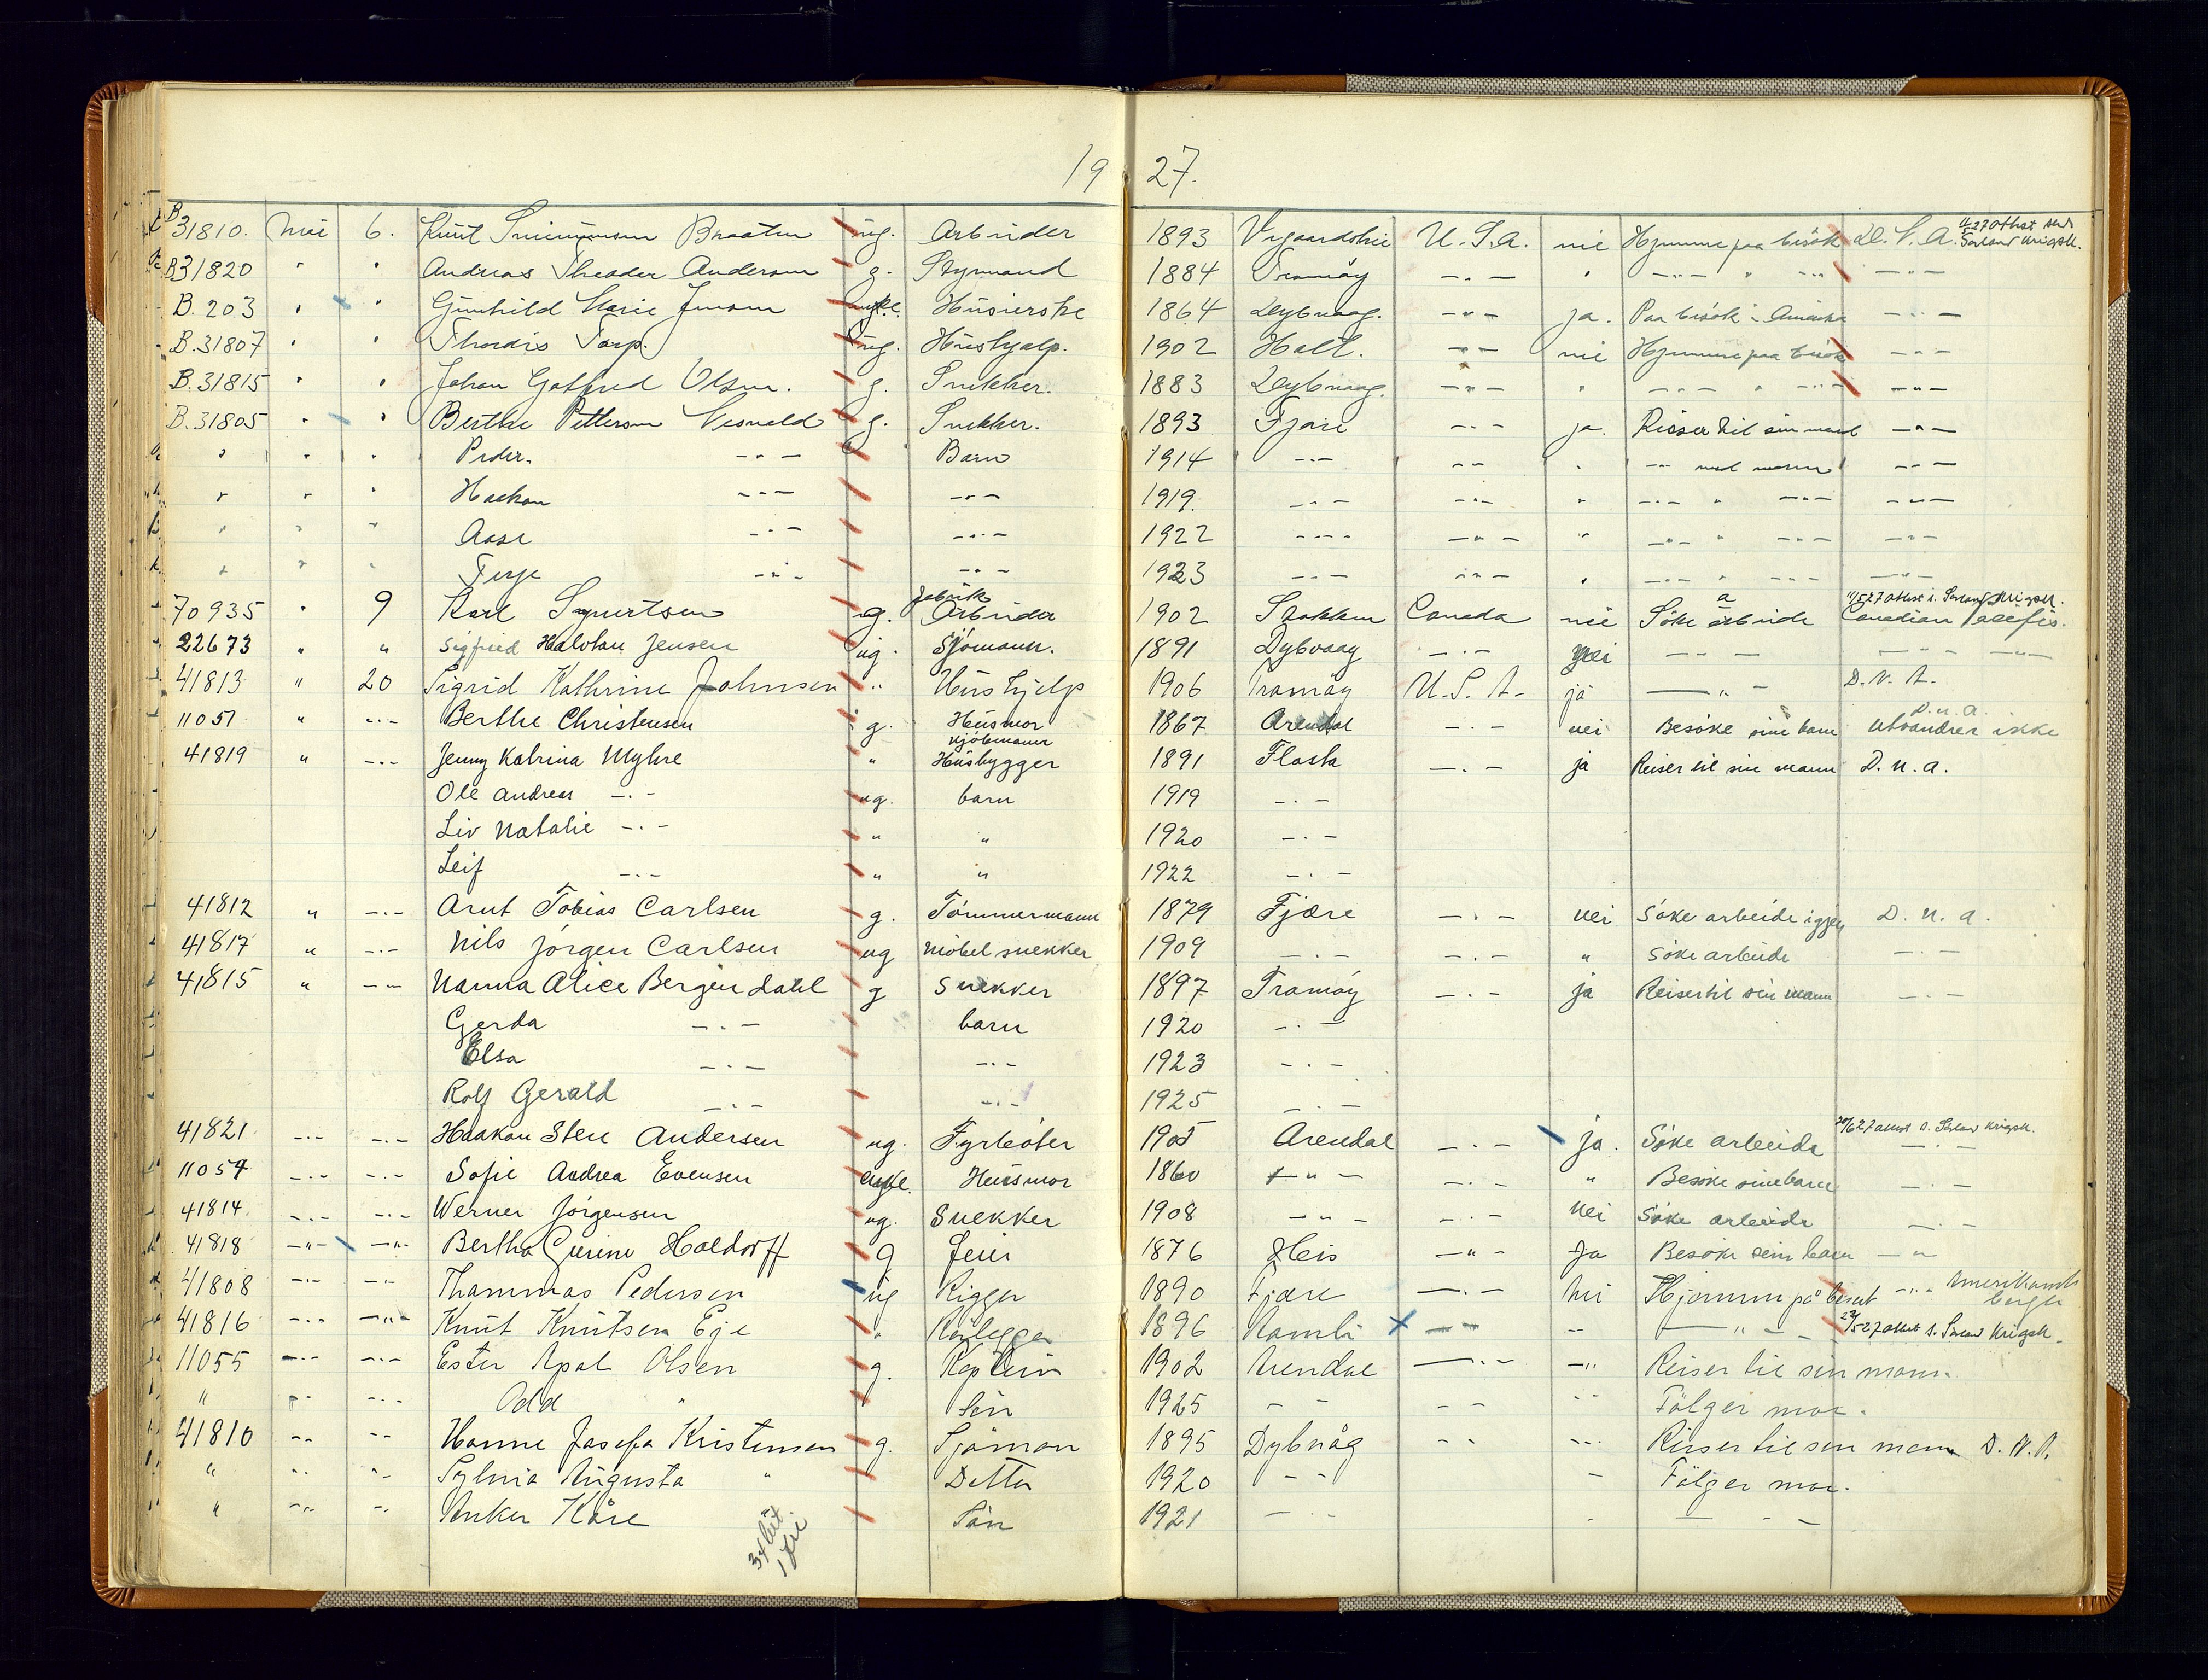 19 27.
B 31810. Mai 6. Knut Braaten ug. Arbeider 1893 U.S.A. nei Hjemme paa besök D. S. A. Attest
B31820 " " Andreas Theodor Andersen g. Styrmand 1884 Tromöy -"- " -"- " -"- -"-
B. 203 " " Gunhild Marie Jensen enke Husierske 1864 Dybvaag. -"- ja. Paa besök i Amerika -"-
B.31807 " " Thordis Torp. ug. Hushjelp. 1902 Holt. -"- nei Hjemme paa besök -"-
B.31815 " " Johan Gotfred Olsen. g. Snekker. 1883 Dybvaag. -"- " -"- " -"- -"-
B.31805 " " Berthe Petterson Vesvald g. Snekker. 1893 Fjære -"- ja. Reiser til sin mand -"-
" " " Peder. -"- Barn 1914 -"- -"- " -"- med moren -"-
" " " Haakon -"- -"- 1919. -"- -"- " -"- " -"- -"-
" " " Aase -"- -"- 1922 -"- -"- " -"- " -"- -"-
" " " Terje -"- -"- 1923 -"- -"- " -"- " -"- -"-
70935 " 9 Karl Syvertsen ug. fabrik Arbeider 1902 Stokken Canada nei Söke arbeide 11/5 27 Attest Canadian Pacific.
22673 " " Sigfred Halvdan Jensen ug. Sjömann. 1891 Dybvaag -"- nei -"- -"-
41813 " 20 Sigrid Kathrine Johnsen " Hushjelp 1906 Tromöy U.S.A. ja -"- D.N.A.
11051 " -"- Berthe Christensen g. Husmor 1867 Arendal -"- nei Besöke sine barn D.n.a. utvandrer ikke
41819 " -"- Jenny Katrina Myhre " Kjöbmann Husbygger 1891 Flosta -"- ja Reiser til sin mann D.n.a.
Ole Andreas -"- ug. barn 1919 -"-
Liv Natalie -"- " " 1920 -"-
Leif -"- " " 1922 -"-
41812 " -"- Arnt Tobias Carlsen g. Tömmermann 1879 Fjære -"- nei Söke arbeide igjen D.n.a.
41817 " -"- Nils Jörgen Carlsen ug möbelsnekker 1909 -"- -"- " Söke arbeide -"-
41815 " -"- Nanna Alice Bergendahl g Snekker 1897 Tromöy -"- ja Reiser til sin mann -"-
Gerda -"- barn 1920 -"-
Elsa -"- -"- 1923 -"-
Rolf Gerald -"- -"- 1925 -"-
41821 -"- -"- Haakon Sten Andersen ug. Fyrböter 1905 Arendal -"- ja. Söke arbeide -"-
11054 -"- -"- Sofie Andrea Evensen enke. Husmor 1860 -"- -"- " Besöke sine barn -"-
41814 -"- -"- Werner Jörgensen ug. Snekker 1908 -"- -"- nei Söke arbeide -"-
41818 -"- -"- Bertha Gurine Holdorff g 1876 His -"- ja Besöke sine barn -"-
41808 -"- -"- Thommas Pedersen ug Rigger 1890 Fjære -"- nei Hjemme på besök -"- Amerikansk borger
41816 -"- -"- Knut Knutsen Eje " 1896 -"- -"- -"-
11055 -"- -"- Ester Apal Olsen g. Kaptein 1902 Arendal -"- -"- Reiser til sin mann.
" -"- -"- Odd " Sön 1925 -"- -"- -"- Fölger mor.
41810 -"- -"- Hanne Josefa Kristensen g. Sjöman 1895 Dybvåg -"- -"- Reiser til sin mann D.N.A.
" -"- -"- Sylvia Augusta " Detter 1920 -"- -"- Fölger mor.
" -"- -"- Anker Kåre Sön 1921 -"- -"-